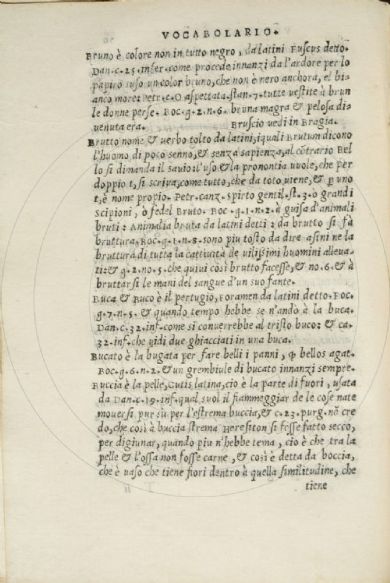 VOCABOLARIO.
Bruno è colore non in tutto negro, da latini Fuscus detto.
Dan. c. 25. infer. come procede innanzi da l'ardore per lo
papiro suso un color bruno, che non è nero anchora, el bi
anco more: Petr. c. O aspettata. stan. 7. tutte vestite à brun
le donne perse. Boc. g. 2. n. 6. bruna magra & pelosa di-
venuta era. Bruscio vedi in Bragia.
Brutto nome, & verbo tolto da latini, i quali Brutum dicono
l'huomo di poco senno, & senza sapienza, al cōtrario Bel
lo si dimanda il savio: l'uso & la prononcia vuole, che per
doppio t, si scriva, come tutto, che da toto viene, & p uno
t, è nome proprio. Petr. canz. spirto gentil. st. 3. o grandi
Scipioni, o fedel Bruto. Boc. g. 1. n. 2. à guisa d'animali
bruti: Animalia bruta da latini detti: da brutto si fà
bruttura. Boc. g. 1. n. 8. sono piu tosto da dire asini ne la
bruttura di tutta la cattività de vilissimi huomini alleva-
ti: & g. 2. no. 5. che quivi così brutto facesse, & no. 6. & à
bruttarsi le mani del sangue d'un suo fante.
Buca & Buco è il pertugio, Foramen da latini detto. Boc.
g. 7. n. 5. & quando tempo hebbe se n'andò à la buca.
Dan. c. 32. inf. come si converrebbe al tristo buco: & ca.
32. inf. che vidi due ghiacciati in una buca.
Bucato è la bugata per fare belli i panni, q̄ bellos agat.
Boc. g. 6. n. 2. & un grembiule di bucato innanzi sempre.
Buccia è la pelle, Cutis latina, cio è la parte di fuori, usata
da Dan. c. 19. inf. qual suol il fiammeggiar de le cose nate
moversi pur su per l'estrema buccia, & c. 23. purg. nō cre
do, che così à buccia strema Heresiton si fosse fatto secco,
per digiunar, quando piu n'hebbe tema, cio è che tra la
pelle & l'ossa non fosse carne, & così è detta da boccia,
che è vaso che tiene fiori dentro à quella similitudine, che
tiene